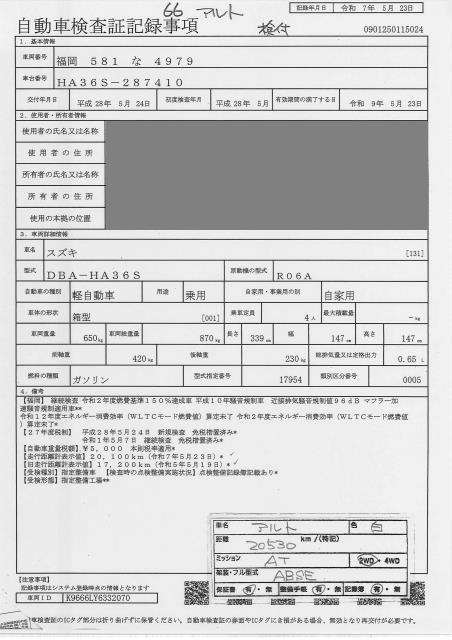 66 アルト 検付
記録年月日 令和 7年 5月 23日
自動車検査証記録事項
0901250115024
1．基本情報
車両番号 福岡 581 な 4979
車台番号 HA36S－287410
交付年月日 平成28年 5月 24日 初度検査年月 平成28年 5月 有効期間の満了する日 令和 9年 5月 23日
2．使用者・所有者情報
使用者の氏名又は名称
使用者の住所
所有者の氏名又は名称
所有者の住所
使用の本拠の位置
3．車両詳細情報
車名 スズキ [131]
型式 DBA－HA36S 原動機の型式 R06A
自動車の種別 軽自動車 用途 乗用 自家用・事業用の別 自家用
車体の形状 箱型 [001] 乗車定員 4人 最大積載量 －kg
車両重量 650kg 車両総重量 870kg 長さ 339cm 幅 147cm 高さ 147cm
前軸重 420kg 後軸重 230kg 総排気量又は定格出力 0.65 L
燃料の種類 ガソリン 型式指定番号 17954 類別区分番号 0005
4．備考
【福岡】 継続検査 令和2年度燃費基準150％達成車 平成10年騒音規制車 近接排気騒音規制値96dB マフラー加
速騒音規制適用車**
令和12年度エネルギー消費効率（WLTCモード燃費値）算定未了 令和2年度エネルギー消費効率（WLTCモード燃費値
）算定未了*
【27年度税制】 平成28年5月24日 新規検査 免税措置済み*
令和1年5月7日 継続検査 免税措置済み*
【自動車重量税額】￥5,000 本則税率適用*
【走行距離計表示値】20,100km（令和7年5月23日）*
【旧走行距離計表示値】17,200km（令和5年5月19日）*
【受検種別】指定整備車 【検査時の点検整備実施状況】点検整備記録簿記載あり*
【受検形態】指定整備工場**
車名 アルト 色 白
距離 20530 km／(特記)
ミッション AT 2WD・4WD
架装・フル型式 ABSE
保証書 有・無 整備手帳 有・無 記録簿 有・無
【注意事項】
記録事項はシステム登録時点の情報となります
車両ID K9666LY6332070
車検査証のICタグ部分は折り曲げずに保管ください。自動車検査証の券面やICタグに余損がある場合、無効となり再交付が必要です。